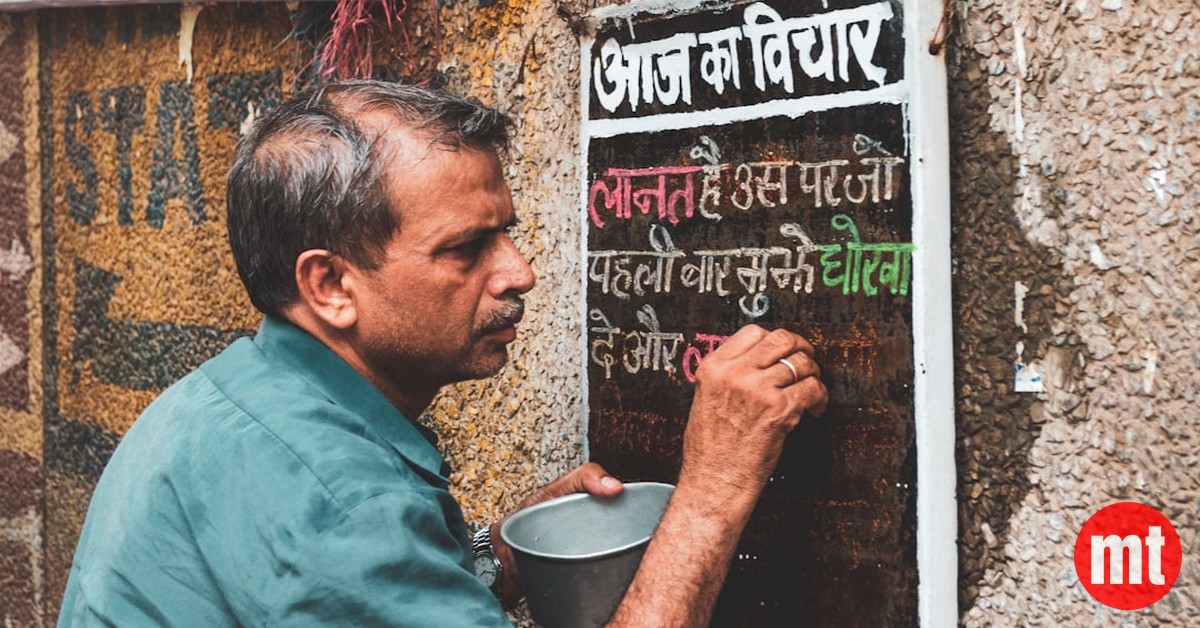 STATE
आज का विचार
लानत है उस पर जो
पहली बार मुझे धोखा
दे और
mt